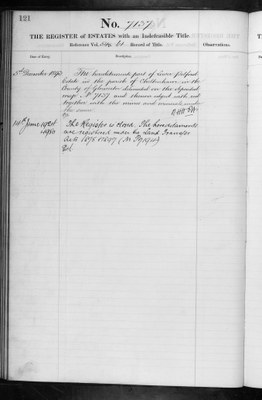 121
No. 7157
THE REGISTER of ESTATES with an Indefeasible Title.
Reference Vol. Fol. Record of Title.
Observations.
Date of Entry.
Description.
December 1893
hereditaments part of
Estate in the parish of Cheltenham in the
County of Gloucester delineated on the deposited
map No 7157 and thereon edged with red
together with the mines and minerals under
the same
14th June
The Register is closed. The hereditaments
are registered under the Land Transfer
Acts 1875 & 1897